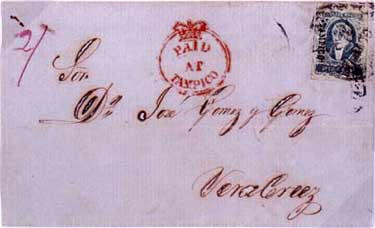 2/
PAID
AT
TAMPICO
Sor.
Dn. José Gomez y Gomez
Vera Cruz